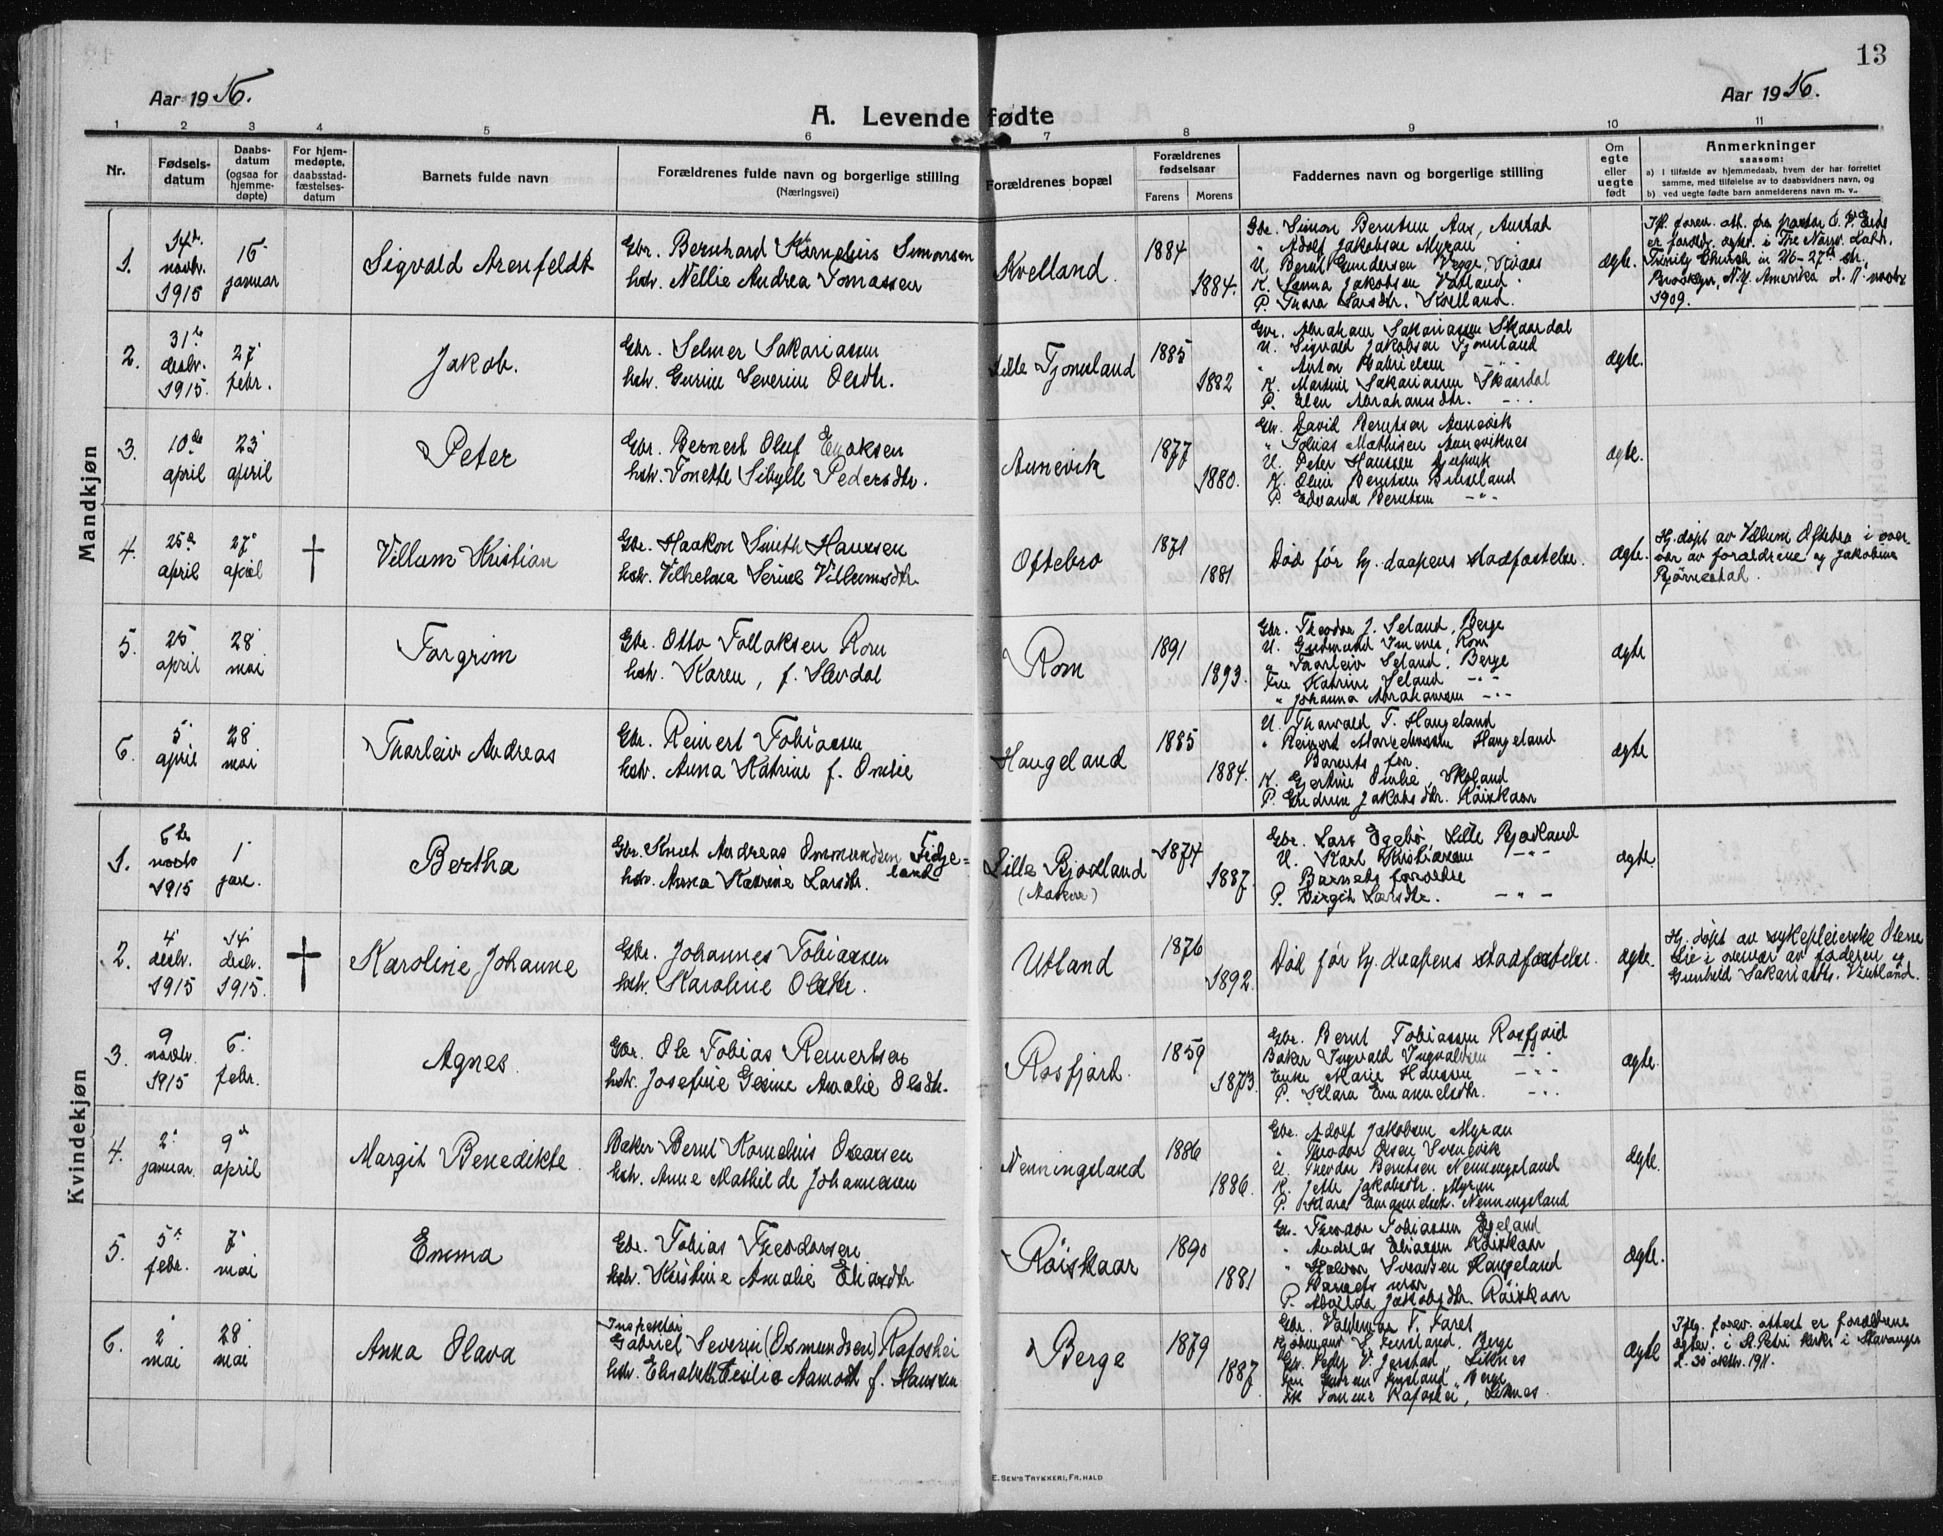 13
Aar 1916.
Aar 1916.
A. Levende fødte
1 2 3 4 5 6 7 8 9 10 11
Nr.
Fødsels-
datum
Daabs-
datum
(ogsaa for
hjemme-
døpte)
For hjem-
medøpte,
daabsstad-
fæstelses-
datum
Barnets fulde navn
Forældrenes fulde navn og borgerlige stilling
(Næringsvei)
Forældrenes bopæl
Forældrenes
fødselsaar
Farens Morens
Faddernes navn og borgerlige stilling
Om
egte
eller
uegte
født
Anmerkninger
saasom:
a) I tilfælde av hjemmedaab, hvem der har forrettet
samme, med tilføielse av to daabsvidners navn, og
b) ved uegte fødte barn anmelderens navn m. v.
Mandkjøn
1.
14de
novbr.
1915
16
januar
Sigvald Arenfeldt
Gbr. Bernhard Kornelius Simonsen
hstr. Nellie Andrea Tomassen
Kvelland.
1884
1884.
Gbr. Simon Berntsen Aas, Austad
" Adolf Jakobsen Myran
U. Bernt Gundersen Vegge,
K. Sanna Jakobsen
P. Thora Larsdtr. Kvelland.
ægte.
Ifl. forev. att. fra pastor
er forældr. egtev. i The Norw. Luth.
Trinity Church in 26-27th str.
Brooklyn, N.Y. Amerika d. 11 novbr
1909.
2.
31te
desbr.
1915.
27
febr.
Jakob.
Gbr. Selmer Sakariassen
hstr. Gurine Severine Olsdtr.
Lille Tjomsland
1885
1882
Gbr. Abraham Sakariassen Skaardal
U. Sigvald Jakobsen Tjomsland
" Anton Gabrielsen - " -
K. Martine Sakariassen Skaardal
P. Elen Abrahamsdtr. - " -
ægte.
3.
10de
april
23
april
Peter
Gbr. Bernert Oluf Enoksen
hstr. Tonette Sibylle Pedersdtr.
Aunevik
1877
1880.
Gbr. David Berntsen Aunevik
" Tobias Mathisen Auneviknes
U. Peter Hanssen
K. Oline Berntsen
P. Edvarda Berntsen - " -
ægte.
4.
25de
april
27
april
†
Villum Kristian
Gbr. Haakon Smith Hanssen
hstr. Vilhelma Serine Villumsdtr.
Oftebro
1871
1881
Død før hj.daapens stadfæstelse.
ægte.
Hj.døpt av Villum Oftebro i over-
vær av forældrene og Jakobine
Bjørnestad.
5.
25
april
28
mai
Torgrim
Gbr. Otto Tollaksen Rom
hstr. Karen, f. Slevdal
Rom
1891
1893.
Gbr. Theodor J. Seland, Berge
U. Gudmund Rom
" Taarleiv Seland, Berge
Fru Katrine Seland - " -
" Johanna Abrahamsen - " -
ægte
6.
5
april
28
mai
Tharleiv Andreas
Gbr. Reinert Tobiassen
hstr. Anna Katrine f. Omlie
Haugeland
1885
1884.
U. Tharvald T. Haugeland
" Reinert Haugeland
Barnets far
K. Gjertine Omlie,
P. Gudrun Jakobsdtr. Røiskaar
ægte
Kvindekjøn
1.
6te
novbr
1915
1
jan.
Bertha
Gbr. Knut Andreas Ommundsen Fidje=
land
hstr. Anna Katrine Larsdtr.
Lille Bjodland
1874
1887.
Gbr. Lars Egebø, Lille Bjodland
U. Karl Kristiansen - " -
Barnets forældre
P. Birgit Larsdtr. - " -
ægte.
2.
4
desbr.
1915
14
desbr.
1915.
†
Karoline Johanne
Gbr. Johannes Tobiassen
hstr. Karoline
Utland
1876
1892.
Død før hj.daapens stadfæstelse.
ægte.
Hj.døpt av sykepleierske Olene
Lie i overvær av faderen og
Gunhild Sakariasdtr.
3.
9
novbr.
1915
6
febr.
Agnes
Gbr. Ole Tobias Reinertsen
hstr. Josefine Gesine Amalie Olsdtr.
Rosfjord.
1859
1873.
Gbr. Bernt Tobiassen Rosfjord
Baker Ingvald Ingvaldsen - " -
Enke Marie Hanssen - " -
P. Klara Emanuelsdtr. - " -
ægte.
4.
2
januar.
9de
april
Margit Benedikte
Baker Bernt Kornelius
hstr. Anne Mathilde Johannesen
Nenningsland
1886
1886.
Gbr. Adolf Jakobsen Myran
" Theodor Olsen Svenevik
U. Theodor Berntsen Nenningsland
K. Jette Jakobsdtr. Myran
P. Klara Emanuelsdtr. Nenningsland
ægte.
5.
5te
febr.
7
mai
Emma
Gbr. Tobias Theodorsen
hstr. Kristine Amalie Eliasdtr
Røiskaar
1890
1881
Gbr. Theodor Tobiassen Egeland
" Andreas Eliassen Røiskaar
" Halvor Svendsen Haugeland
Barnets mor
P. Alvilda Jakobsdtr. Røiskaar
ægte.
6.
2
mai
28
mai
Anna Olava
Inspektør
Gabriel Severin (Osmundsen) Rafoshei
hstr. Elisabeth Cesilie Aamodt f. Hanssen
Berge
1879
1887.
Gbr. Valdemar T. Faret
Kjøbmand Berge
Gbr. Peder V. Jerstad, Liknes
Fru Berge
Frk Tomine Rafoshei, Liknes.
ægte
Iflg. forev. attest er forældrene
egtev. i St. Petri kirke i Stavanger
d. 30 oktbr. 1911.
E. SEM'S TRYKKERI, FR.HALD